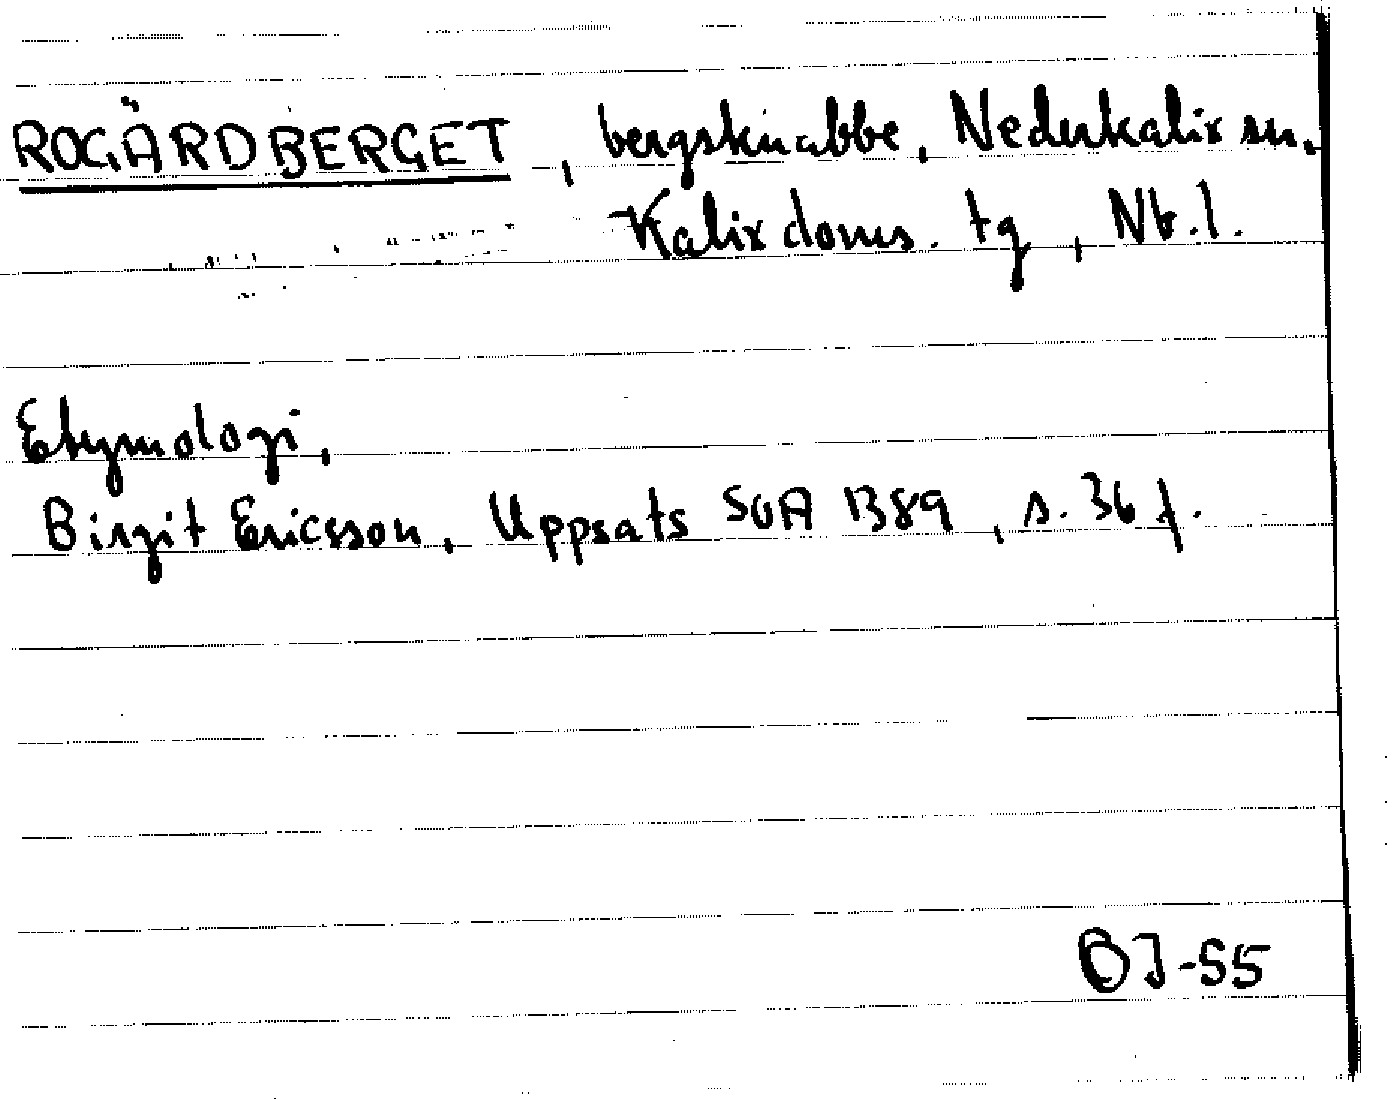 ROGÄRDBERGET, bergsknabbe, Nederkalix sn.
Kalix doms. tg, Nb.l.
Etymologi,
Birgit Ericsson, Uppsats SOA 1389, s. 36 f.
BJ-55